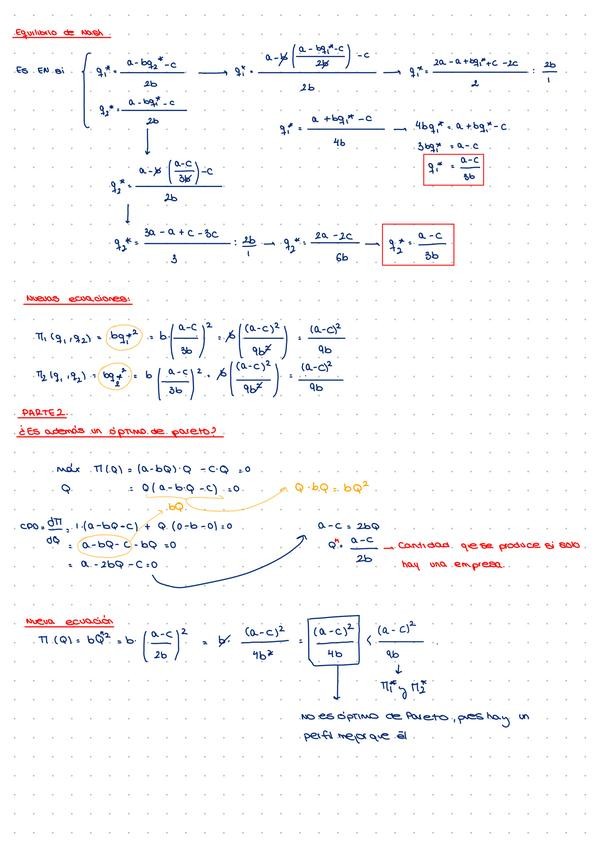 Equilibrio de Nash.
Es EN si { q₁* = (a - bq₂* - c)/2b → q₁* = (a - b((a - bq₁* - c)/2b) - c)/2b → q₁* = (2a - a + bq₁* + c - 2c)/2 : 2b/1
q₂* = (a - bq₁* - c)/2b
q₁* = (a + bq₁* - c)/4b → 4bq₁* = a + bq₁* - c
3bq₁* = a - c
q₁* = (a - c)/3b
q₂* = (a - b((a - c)/3b) - c)/2b
q₂* = (3a - a + c - 3c)/3 : 2b/1 → q₂* = (2a - 2c)/6b → q₂* = (a - c)/3b
Nuevas ecuaciones:
π₁(q₁, q₂) = bq₁*² = b·((a - c)/3b)² = b((a - c)²/9b²) = (a - c)²/9b
π₂(q₁, q₂) = bq₂*² = b((a - c)/3b)² = b((a - c)²/9b²) = (a - c)²/9b
PARTE 2.
¿Es además un óptimo de pareto?
máx π(Q) = (a - bQ)·Q - c·Q = 0
Q = Q(a - b·Q - c) = 0 → Q·bQ = bQ²
bQ
CPO = dπ/dQ = 1·(a - bQ - c) + Q(0 - b - 0) = 0
= a - bQ - c - bQ = 0
= a - 2bQ - c = 0
a - c = 2bQ
Q* = (a - c)/2b → Cantidad que se produce si solo
hay una empresa.
Nueva ecuación
π(Q) = bQ*² = b·((a - c)/2b)² = b· (a - c)²/4b² = (a - c)²/4b < (a - c)²/9b
π₁* y π₂*
No es óptimo de Pareto, pues hay un
perfil mejor que él